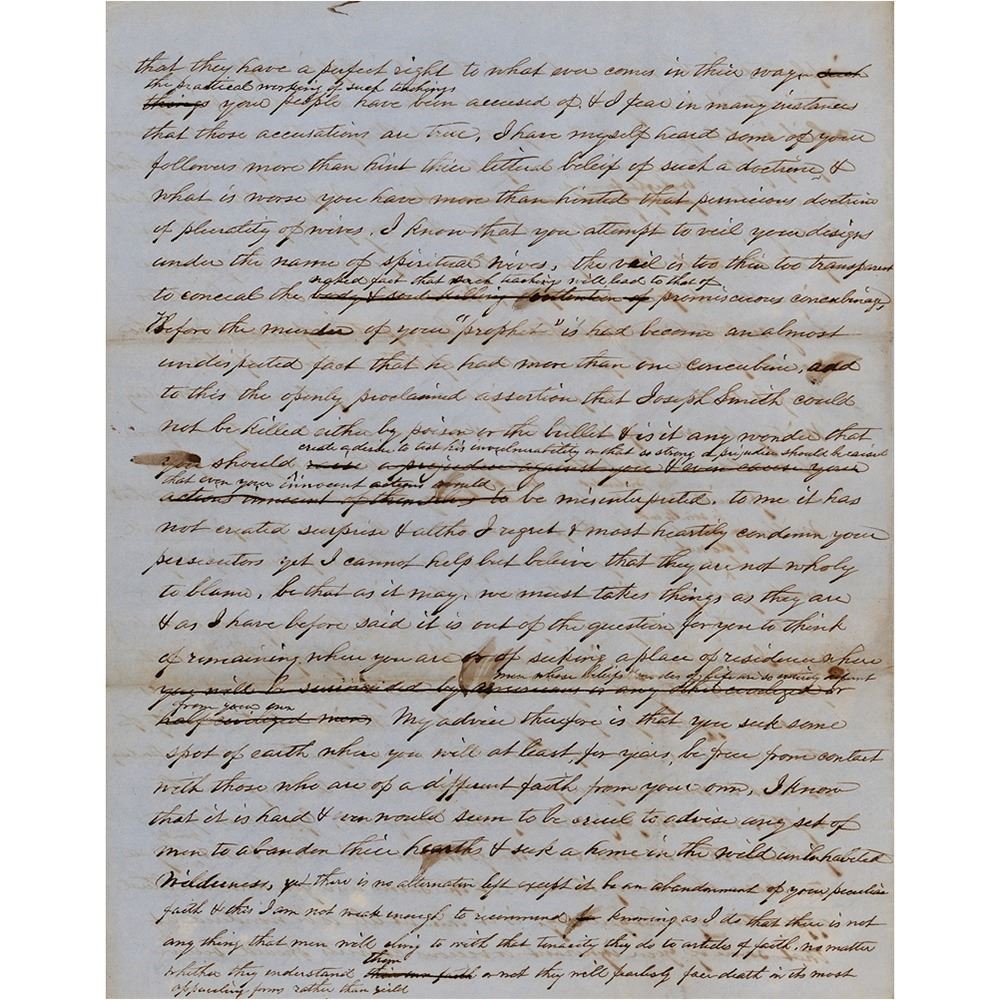 that they have a perfect right to what ever comes in thier way, such
the practical working of such teachings
things your people have been accused of, & I fear in many instances
that those accusations are true, I have myself heard some of your
followers more than hint thier litteral beleif of such a doctrine, &
what is worse you have more than hinted that pernicious doctrine
of plurality of wives. I know that you attempt to veil your designs
under the name of spiritual wives, the veil is too thin too transparent
naked fact that such teaching will lead to that of
to conceal the body & soul killing intention of promiscuous concubinage,
Before the murder of your "prophet" is had become an almost
undisputed fact that he had more than one concubine, add
to this the openly proclaimed assertion that Joseph Smith could
not be killed either by poison or the bullet & is it any wonder that
create a desire to test his invulnerability or that so strong a prejudice should be raised
should raise a prejudice against you & even cause your
that even your innocent actions would
actions innocent of themselves to be misinterpreted. to me it has
not created surprise & altho I regret & most heartily condemn your
persecutors yet I cannot help but beleive that they are not wholy
to blame, be that as it may, we must takes things as they are
& as I have before said it is out of the question for you to think
of remaining where you are or of seeking a place of residence where
men whose beliefs & modes of life are so entirely different
you will be surrounded by Americans or any other civilized or
from your own
half civilized men, My advice therefore is that you seek some
spot of earth where you will at least, for years, be free from contact
with those who are of a different faith from your own, I know
that it is hard & even would seem to be cruel to advise any set of
men to abandon thier hearths & seek a home in the wild uninhabited
Wilderness, yet there is no alternative left except it be an abandonment of your peculiar
faith & this I am not weak enough to recommend knowing as I do that there is not
any thing that men will cling to with that tenacity they do to articles of faith. no matter
them
whether they understand their own faith or not they will fearlessly face death in its most
appauling forms rather than yield